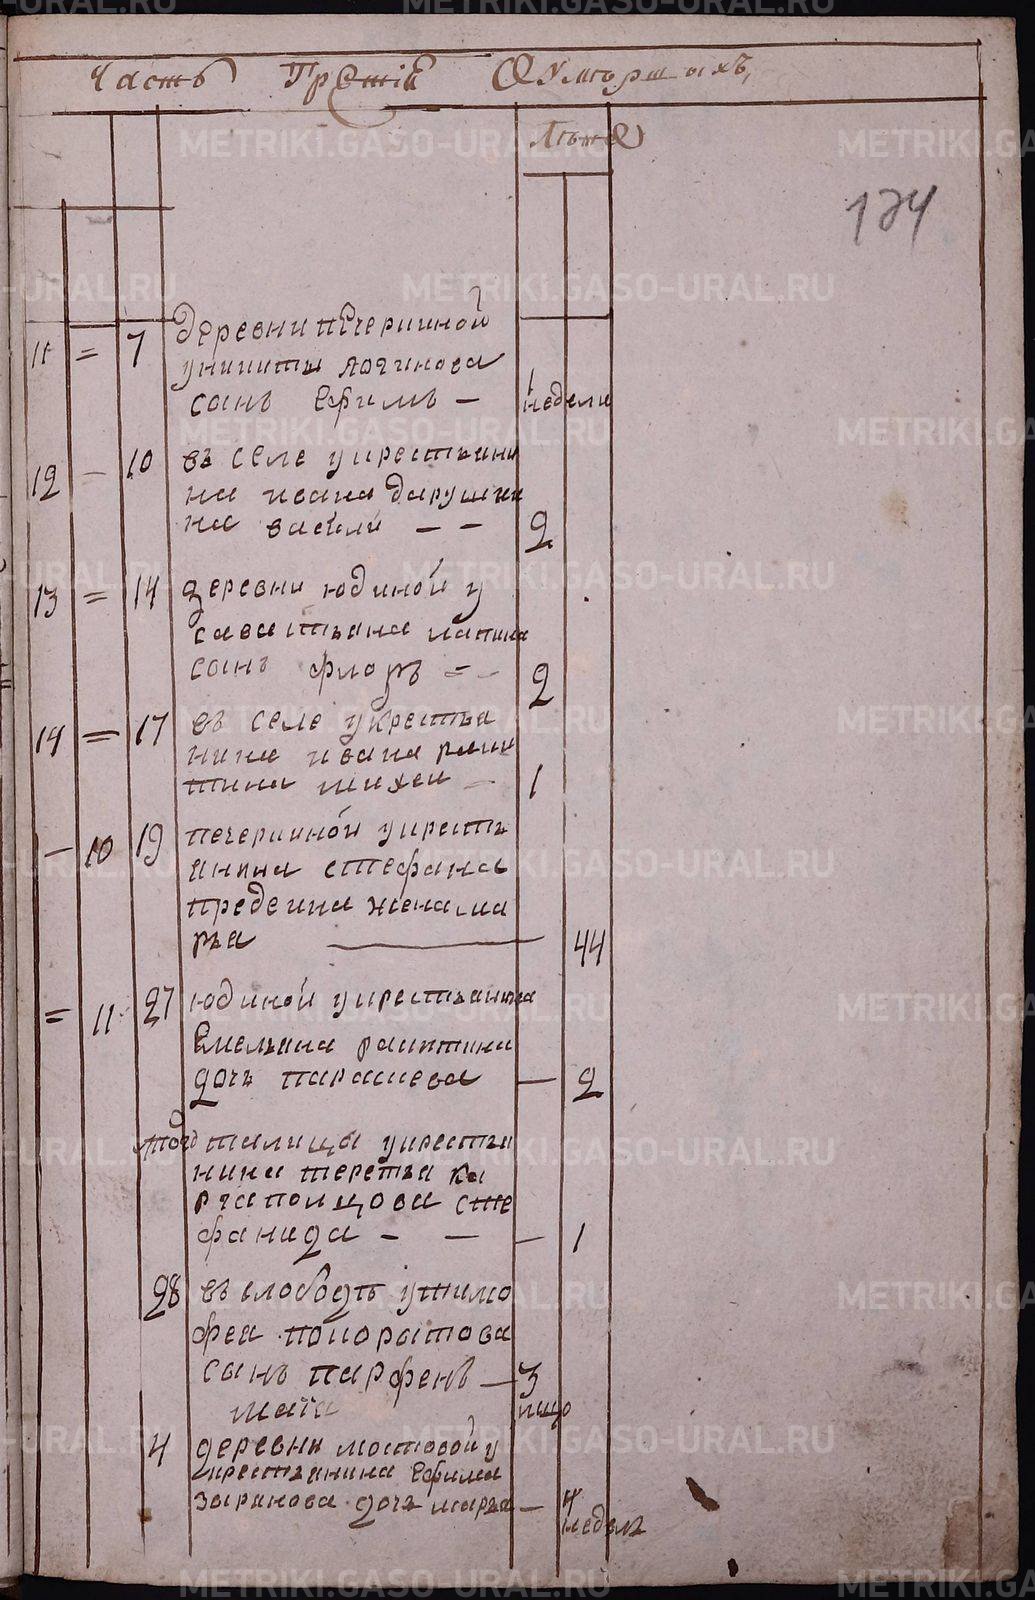 Часть Третія О Умершыхъ,
Лѣта
124
11 = 7 деревни печеркиной
у никиты логинова
сынъ Ефимъ — 1 недели
12 — 10 въ селе у крестьяни
на ивана
на васили — — 2
13 = 14 деревни юдиной у
савастьяна лапина
сынъ флоръ = - 2
14 = 17 въ селе у крестья
нина ивана ракин
тина михеи — 1
— 10 19 печеркиной у кресть
янина стефана
предеина жена ма
рья — 44
= 11 27 юдиной у крестьянина
Емельяна ракитина
дочь параскева — 2
того талицы у крестья
нина терентья ка
рго полцова сте
фанида — — — 1
28 въ слободѣ у тимо
феа понократова
сынъ парфенъ — 3
маїа
4 деревни мостовой у
крестьянина Ефима
зырянова дочь марья — 4
недѣль